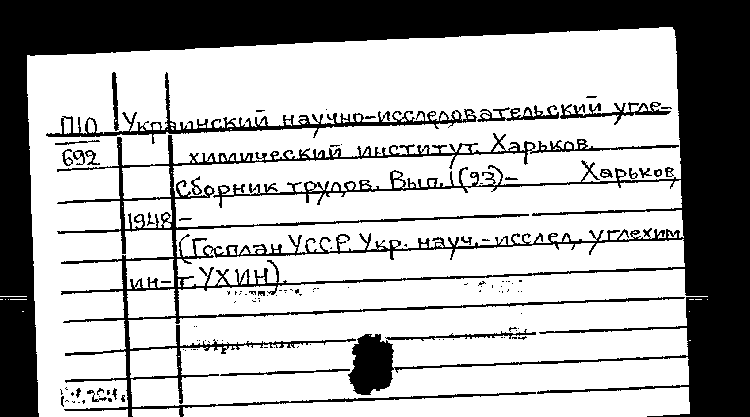 П10 Украинский научно-исследовательский угле-
692 химический институт. Харьков.
Сборник трудов. Вып. 1(93)- Харьков,
1948-
(Госплан УССР. Укр. науч.-исслед. углехим.
ин-т. УХИН).